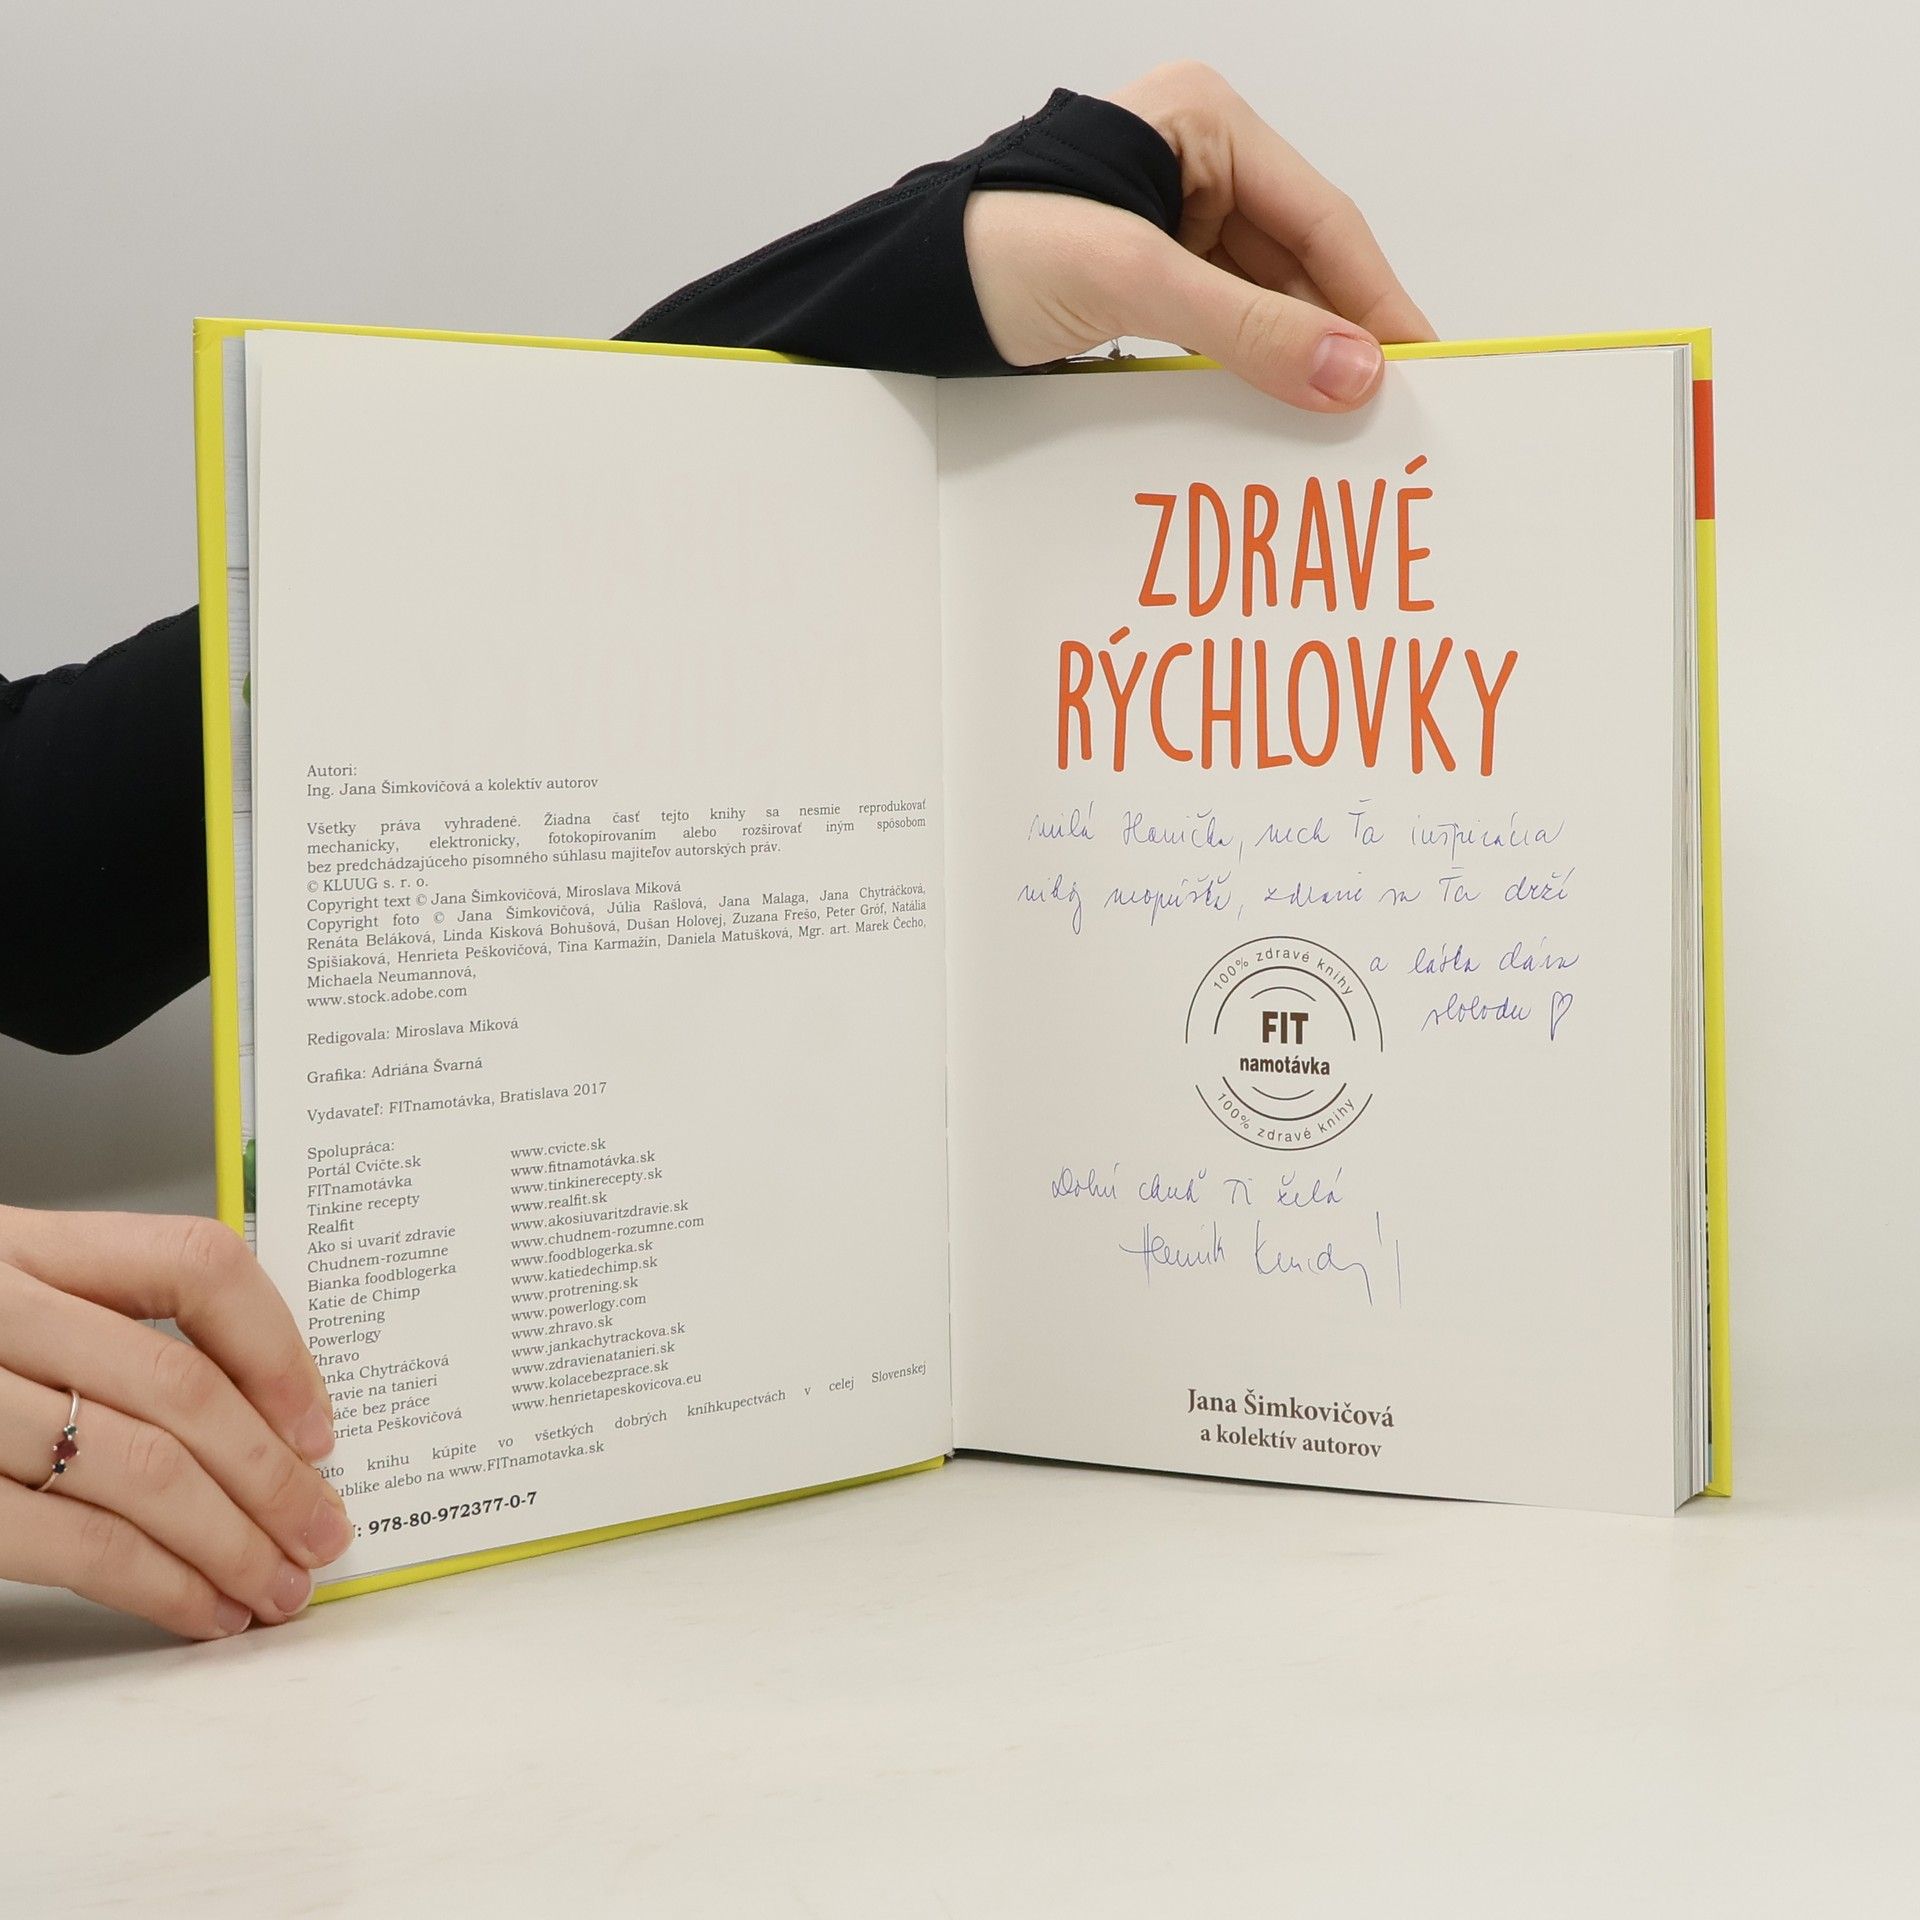 Autori:
Ing. Jana Šimkovičová a kolektív autorov
Všetky práva vyhradené. Žiadna časť tejto knihy sa nesmie reprodukovať
mechanicky, elektronicky, fotokopírovaním alebo rozširovať iným spôsobom
bez predchádzajúceho písomného súhlasu majiteľov autorských práv.
© KLUUG s. r. o.
Copyright text © Jana Šimkovičová, Miroslava Miková
Copyright foto © Jana Šimkovičová, Júlia Rašlová, Jana Malaga, Jana Chytráčková,
Renáta Beláková, Linda Kisková Bohušová, Dušan Holovej, Zuzana Frešo, Peter Gróf, Natália
Spišiaková, Henrieta Peškovičová, Tina Karmažín, Daniela Matušková, Mgr. art. Marek Čecho,
Michaela Neumannová,
www.stock.adobe.com
Redigovala: Miroslava Miková
Grafika: Adriána Švarná
Vydavateľ: FITnamotávka, Bratislava 2017
Spolupráca:
Portál Cvičte.sk www.cvicte.sk
FITnamotávka www.fitnamotávka.sk
Tinkine recepty www.tinkinerecepty.sk
Realfit www.realfit.sk
Ako si uvariť zdravie www.akosiuvaritzdravie.sk
Chudnem-rozumne www.chudnem-rozumne.com
Bianka foodblogerka www.foodblogerka.sk
Katie de Chimp www.katiedechimp.sk
Protrening www.protrening.sk
Powerlogy www.powerlogy.com
Zhravo www.zhravo.sk
anka Chytráčková www.jankachytrackova.sk
ravie na tanieri www.zdravienatanieri.sk
áče bez práce www.kolacebezprace.sk
nrieta Peškovičová www.henrietapeskovicova.eu
úto knihu kúpite vo všetkých dobrých kníhkupectvách v celej Slovenskej
ublike alebo na www.FITnamotavka.sk
: 978-80-972377-0-7
ZDRAVÉ
RÝCHLOVKY
milá Hanička, nech Ťa inšpirácia
nikdy neopúšťa, zdravie sa Ťa drží
a láska dáva
slobodu
100% zdravé knihy
FIT
namotávka
100% zdravé knihy
Dobrú chuť Ti želá
Jana Šimkovičová
a kolektív autorov